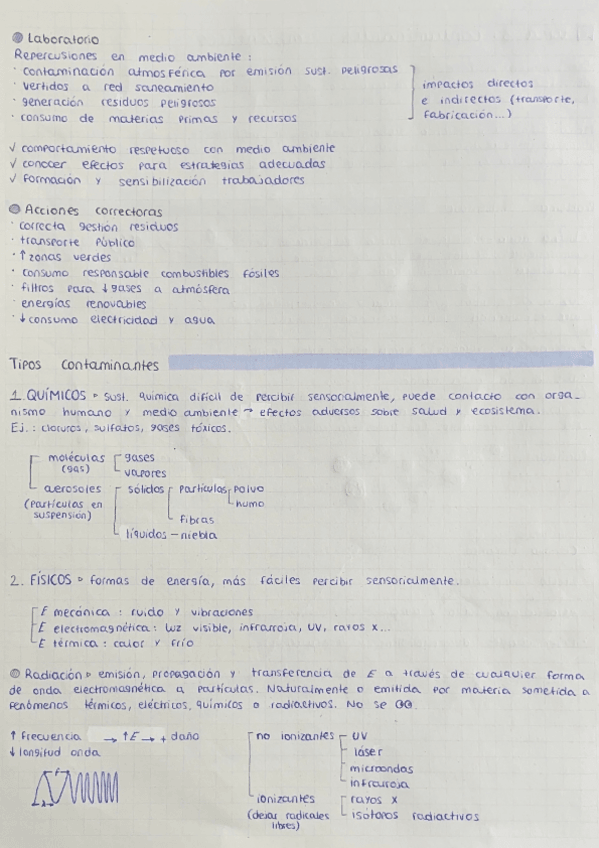 Laboratorio
Repercusiones en medio ambiente:
· contaminación atmosférica por emisión sust. peligrosas
· vertidos a red saneamiento
· generación residuos peligrosos
· consumo de materias primas y recursos
impactos directos
e indirectos (transporte,
fabricación...)
✓ comportamiento respetuoso con medio ambiente
✓ conocer efectos para estrategias adecuadas
✓ formación y sensibilización trabajadores
Acciones correctoras
· correcta gestión residuos
· transporte público
· ↑ zonas verdes
· consumo responsable combustibles fósiles
· filtros para ↓ gases a atmósfera
· energías renovables
· ↓ consumo electricidad y agua
Tipos contaminantes
1. QUÍMICOS ▹ sust. química difícil de percibir sensorialmente, puede contacto con orga-
nismo humano y medio ambiente → efectos adversos sobre salud y ecosistema.
Ej.: cloruros, sulfatos, gases tóxicos.
moléculas (gas)
gases
vapores
aerosoles (partículas en suspensión)
sólidos
partículas
polvo
humo
fibras
líquidos - niebla
2. FÍSICOS ▹ formas de energía, más fáciles percibir sensorialmente.
E mecánica: ruido y vibraciones
E electromagnética: luz visible, infrarroja, UV, rayos x...
E térmica: calor y frío
Radiación ▹ emisión, propagación y transferencia de E a través de cualquier forma
de onda electromagnética a partículas. Naturalmente o emitida por materia sometida a
fenómenos térmicos, eléctricos, químicos o radiactivos. No se
↑ frecuencia → ↑E → + daño
↓ longitud onda
no ionizantes
UV
láser
microondas
infrarroja
ionizantes
(dejar radicales
libres)
rayos x
isótopos radiactivos